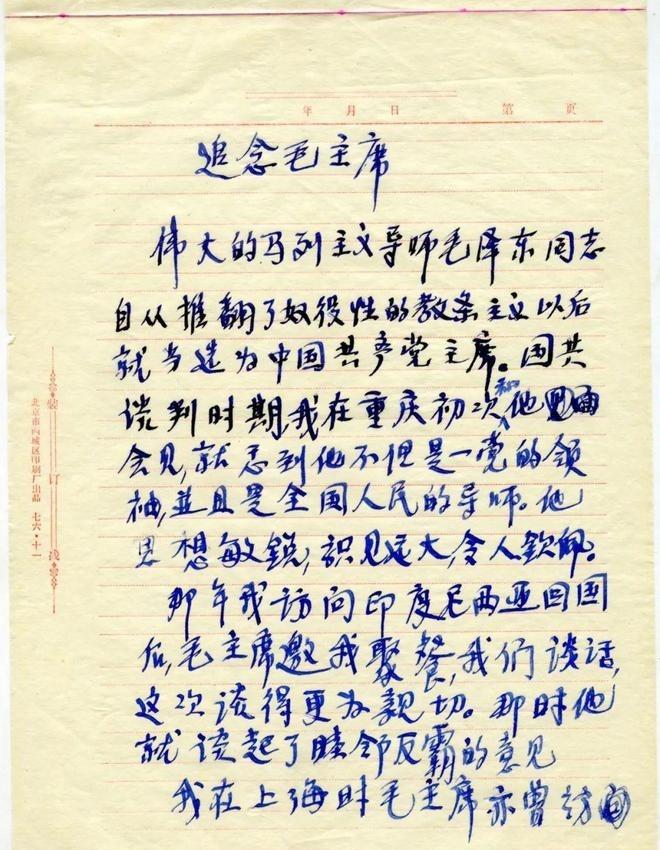 年 月 日 第 页
追念毛主席
伟大的马列主义导师毛泽东同志
自从推翻了奴役性的教条主义以后
就当选为中国共产党主席。国共
谈判时期我在重庆初次和他
会见,就忑到他不但是一党的领
袖,并且是全国人民的导师。他
思想敏锐,识见远大,令人钦佩。
那年我访问印度尼西亚回国
后,毛主席邀我聚餐,我们谈话,
这次谈得更为亲切。那时他
就谈起了睦邻反霸的意见
我在上海时毛主席亦曾访
装订线
北京市西城区印刷厂出品 七六·十一